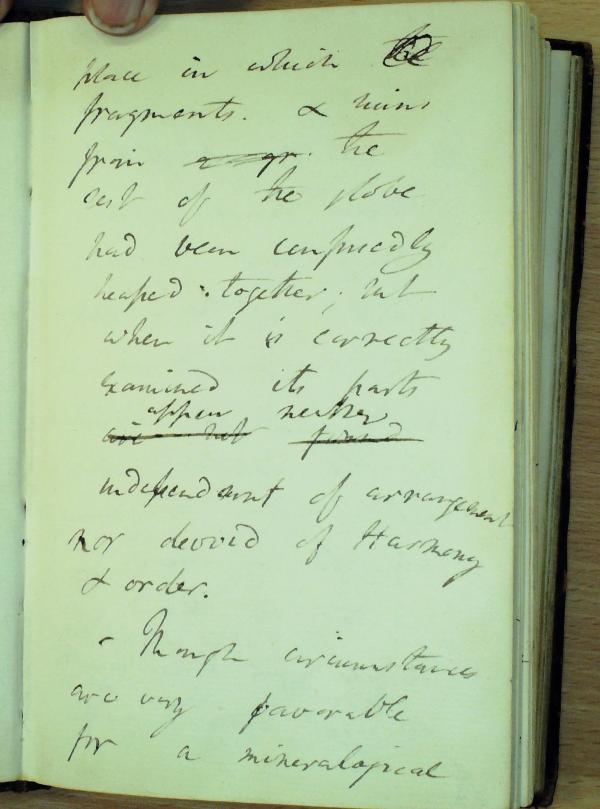 place in which the
fragments. & ruins
from the
rest of the globe
had been confusedly
heaped together; but
when it is correctly
examined its parts
appear neither
are not found
independant of arrangement
nor devoid of Harmony
& order.
- Though circumstances
are very favorable
for a mineralogical